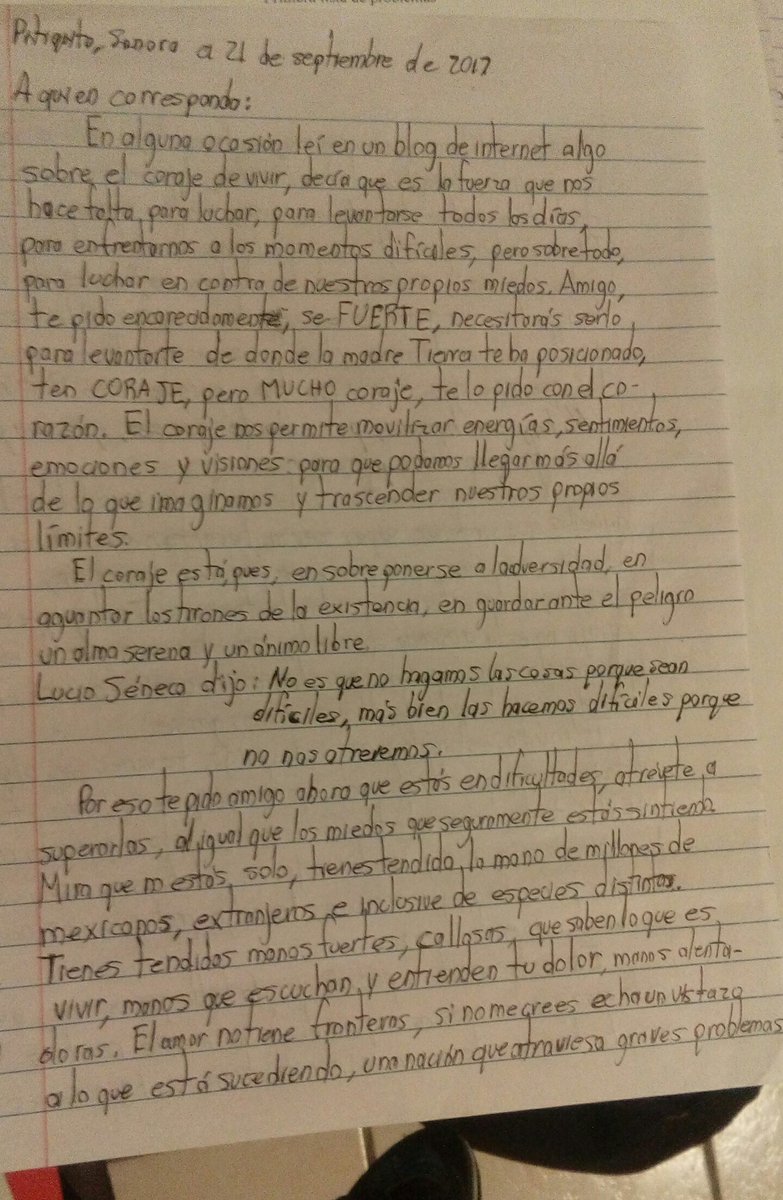 Pitiquito, Sonora a 21 de septiembre de 2017
A quien corresponda:
En alguna ocasión leí en un blog de internet algo
sobre el coraje de vivir, decía que es la fuerza que nos
hace falta, para luchar, para levantarse todos los días,
para enfrentarnos a los momentos difíciles, pero sobre todo,
para luchar en contra de nuestros propios miedos. Amigo,
te pido encarecidamente, se FUERTE, necesitarás serlo,
para levantarte de donde la madre Tierra te ha posicionado,
ten CORAJE, pero MUCHO coraje, te lo pido con el co-
razón. El coraje nos permite movilizar energías, sentimientos,
emociones y visiones para que podamos llegar más allá
de lo que imaginamos y trascender nuestros propios
límites.
El coraje está, pues, en sobreponerse a la adversidad, en
aguantar los tirones de la existencia, en guardar ante el peligro
un alma serena y un ánimo libre.
Lucio Séneca dijo: No es que no hagamos las cosas porque sean
difíciles, más bien las hacemos difíciles porque
no nos atrevemos.
Por eso te pido amigo ahora que estás en dificultades, atrévete a
superarlas, al igual que los miedos que seguramente estás sintiendo.
Mira que no estás solo, tienes tendida la mano de millones de
mexicanos, extranjeros, e inclusive de especies distintas.
Tienes tendidas manos fuertes, callosas, que saben lo que es
vivir, manos que escuchan y entienden tu dolor, manos alenta-
doras. El amor no tiene fronteras, si no me crees echa un vistazo
a lo que está sucediendo, una nación que atraviesa graves problemas